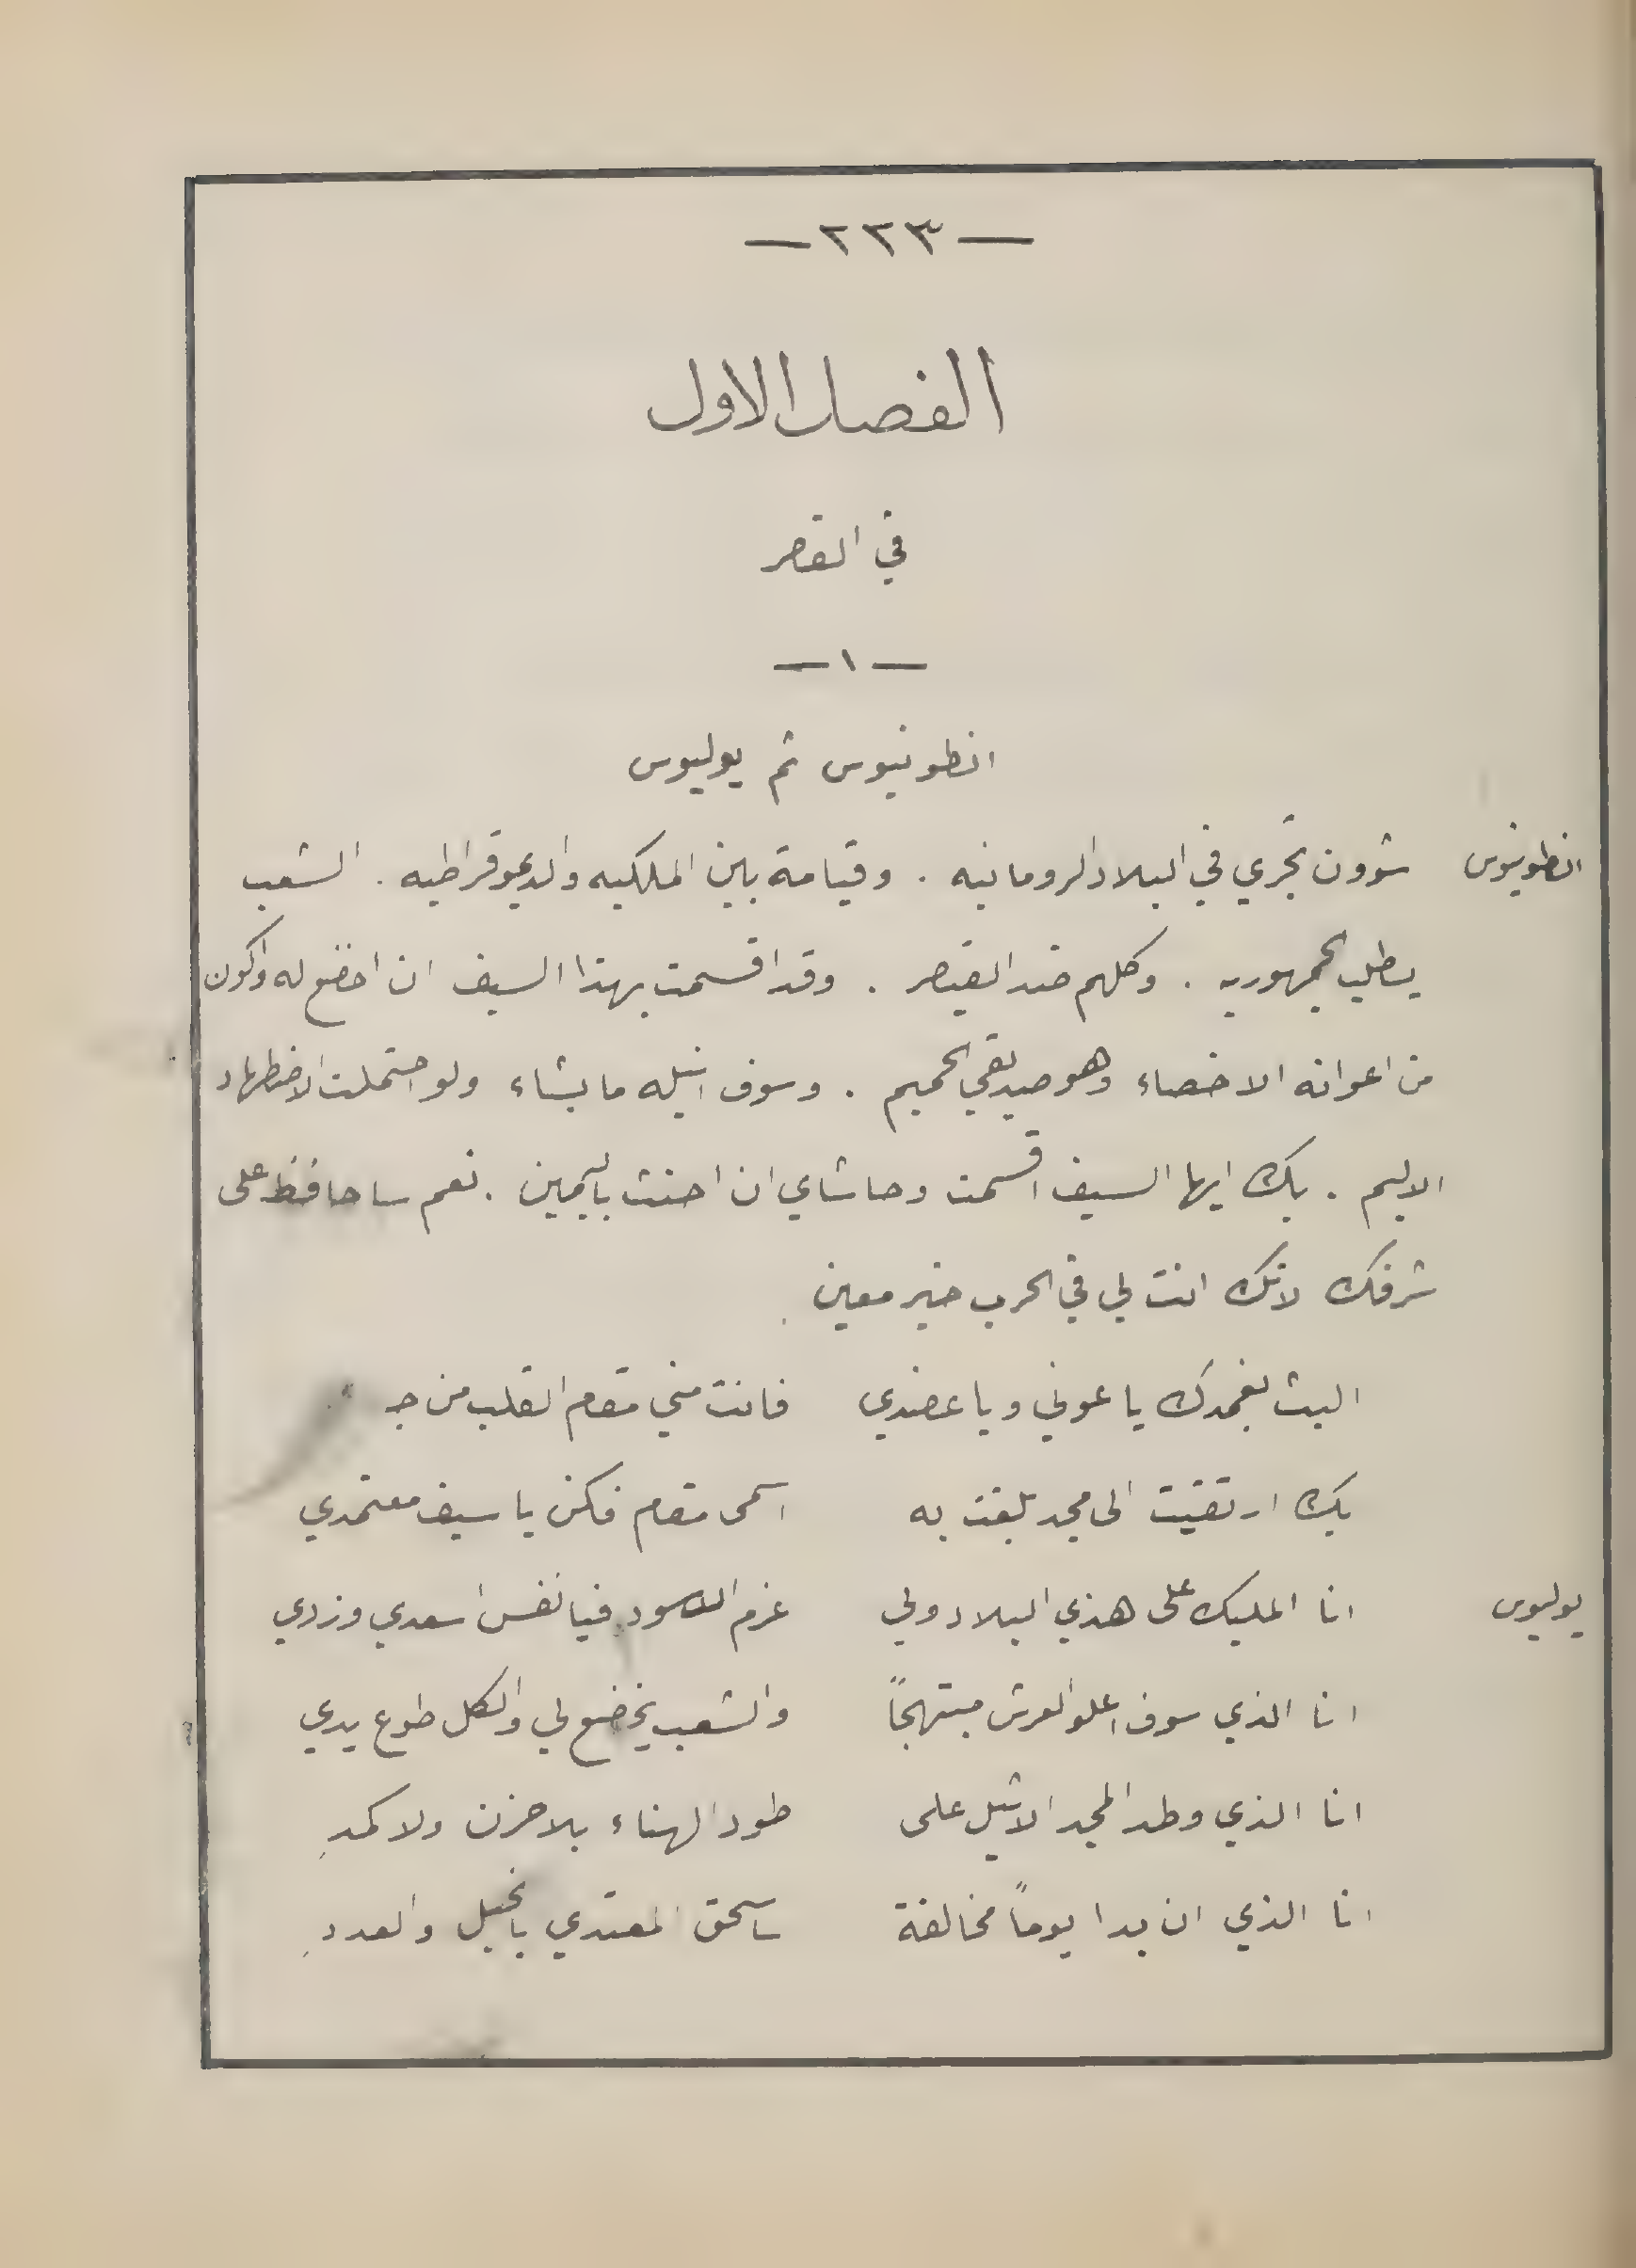 — ٢٢٣ —
الفصل الاول
في القصر
— ١ —
انطونيوس ثم يوليوس
انطونيوس شوون تجري في البلاد الرومانيه . وقيامة بين الملكيه والديموقراطيه . الشعب
يطلب الجمهوريه . وكلهم ضد القيصر . وقد اقسمت بهذا السيف ان اخضع له واكون
من اعوانه الاخصاء وهو صديقي الحميم . وسوف انيله ما يشاء ولو احتملت الاضطهاد
الاليم . بك ايها السيف اقسمت وحاشاي ان احنث باليمين . نعم ساحافظ على
شرفك لانك انت لي في الحرب خير معين
البث بغمدك يا عوني ويا عضدي فانت مني مقام القلب من
بك ارتقيت الى مجد بلغت به اسمى مقام فكن يا سيف معتمدي
يوليوس انا المليك على هذي البلاد ولي عزم الاسود فيا نفس اسعدي وزدي
انا الذي سوف اعلو العرش مبتهجاً والشعب يخضع لي والكل طوع يدي
انا الذي وطد المجد الاثيل على طود الهناء بلا حزن ولا كمدِ
انا الذي ان بدا يوماً مخالفة ساسحق المعتدي بالخيل والعددِ